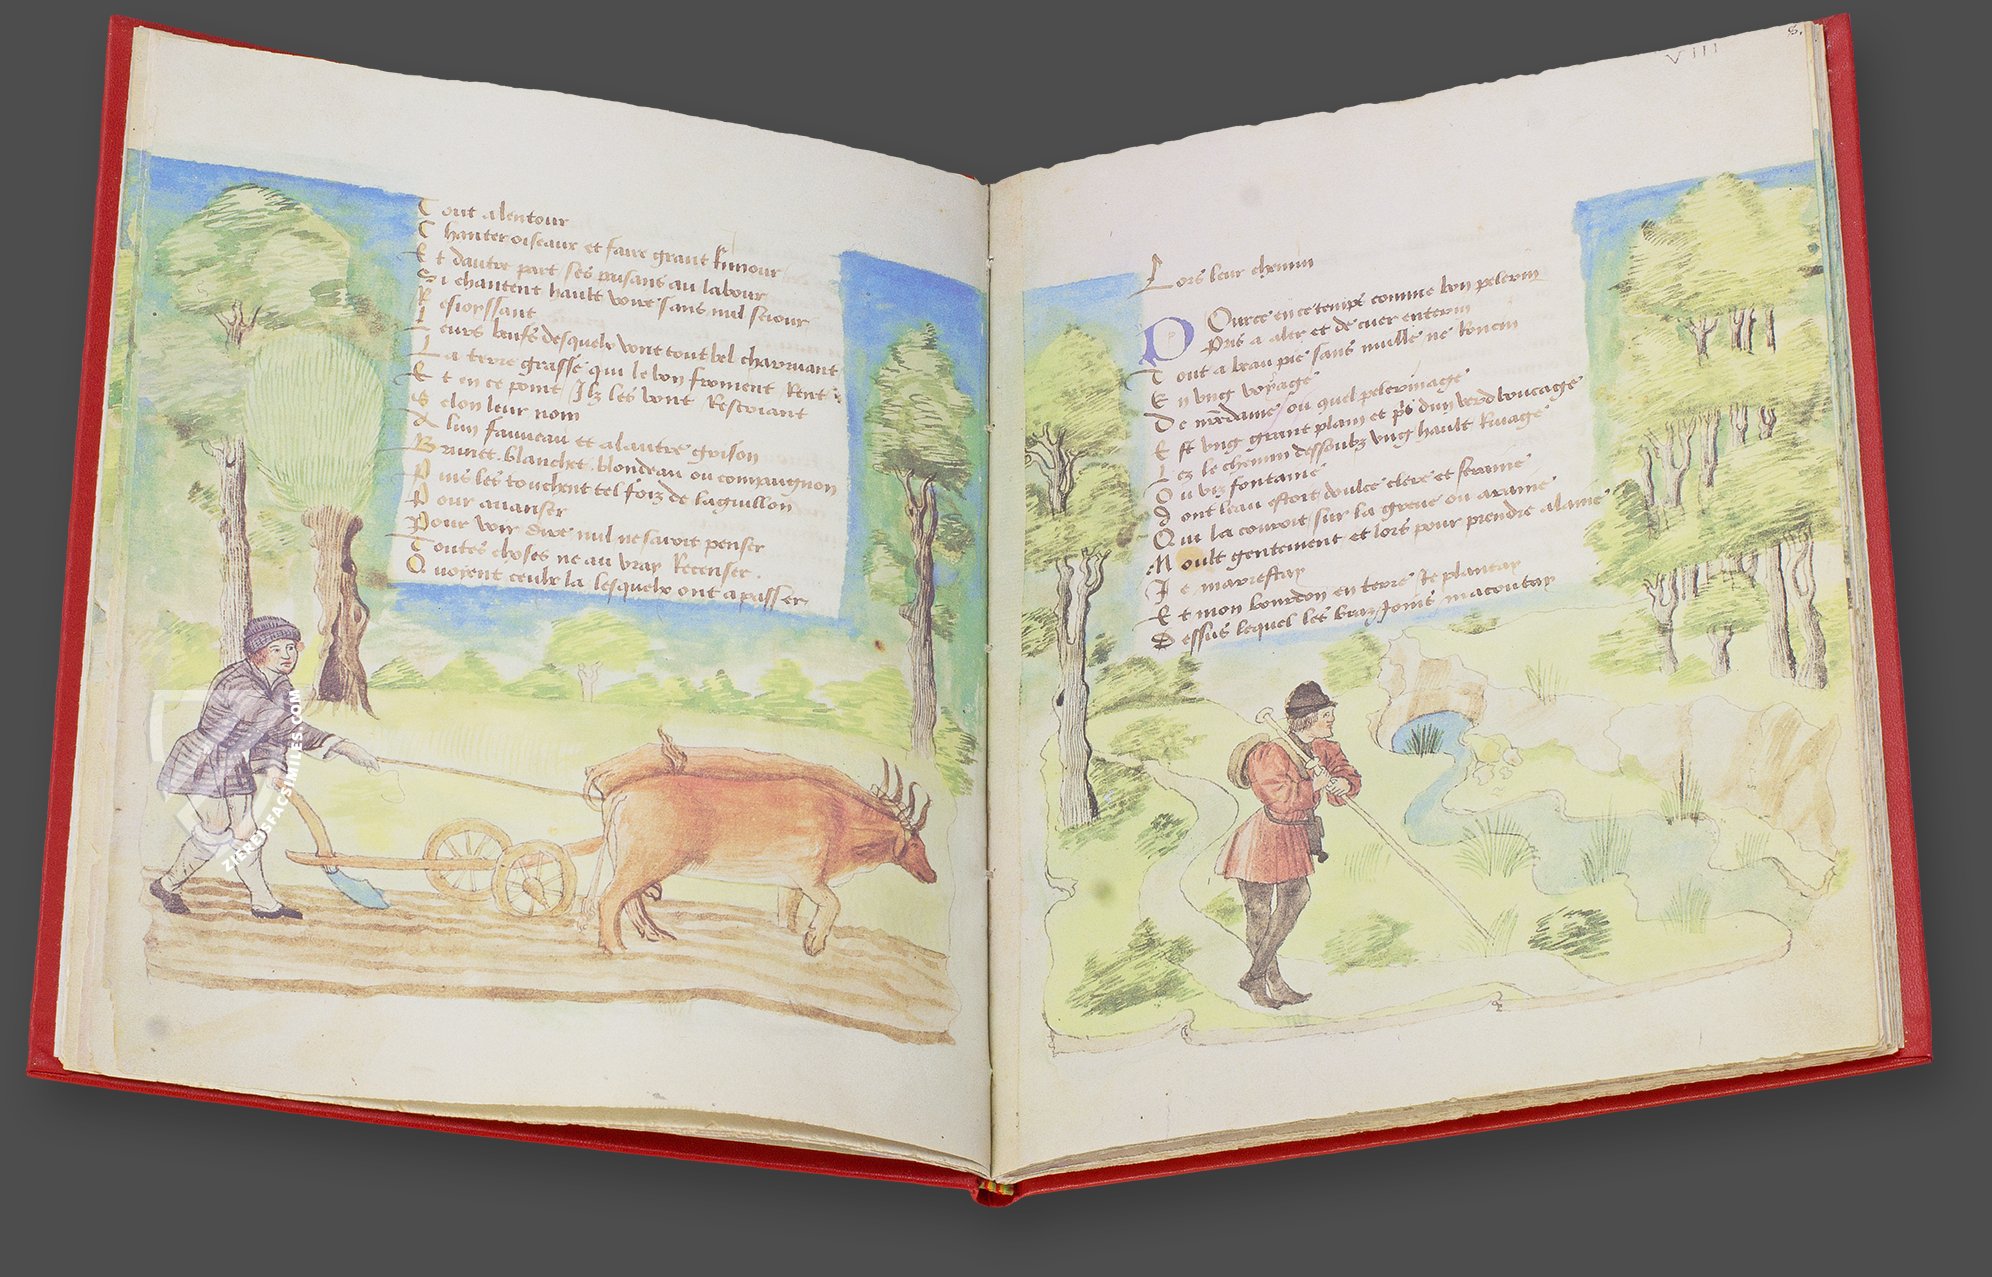 Tout alentour
Chanter oiseaux et faire grant rumour
Et dautre part ses paisans au labour
Si chantent hault voire sans nul seiour
Resioyssant
Leurs beufs desquelz vont tout bel charruant
La terre grasse qui le bon froment Rent
Et en ce point Ilz les vont Rescriant
Selon leur nom
A lun fauveau et alautre grison
Brunet blanchet blondeau ou compaignon
Puis les touchent tel foiz de laguillon
Pour avanser
Pour voir dire nul ne savroit penser
Toutes choses ne au vray Recenser.
Quoyent ceulx la lesquelz ont a passer
VIII
8.
Lors leur chemin
Pource en ce temps comme bon pelerin
Pris a aler et de cuer enterin
Tout a beau pie sans mulle ne Roncin
En ung voyage
De nostre dame ou quel pelerinage
Est ung grant plain et pres dun verd boucage
Lez le chemin dessoubz ung hault Rivage
Ou viz fontaine
dont leau estoit doulce clere et seraine
Qui la couroit sur la greve ou araine
Moult gentement et lors pour prendre alaine
Je marrestay
Et mon bourdon en terre Je plantay
Dessus lequel les bras Joins macoutay
ZIEREIS FACSIMILES.COM